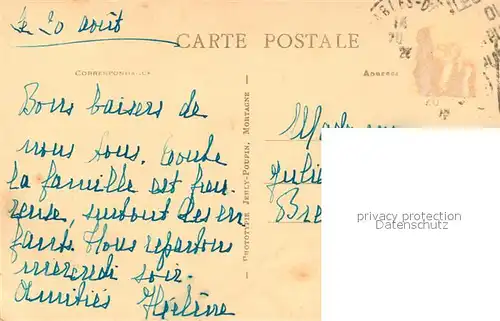 Le 20 août
CARTE POSTALE
CORRESPONDANCE
ADRESSE
Bons baisers de
nous tous. Toute
la famille est heu-
reuse, surtout les en
fants. Nous repartons
mercredi soir.
Amitiés Hélène
PHOTOTYPIE JEHLY-POUPIN, MORTAGNE
Julie
Bre
privacy protection
ansichtskartenversand.com